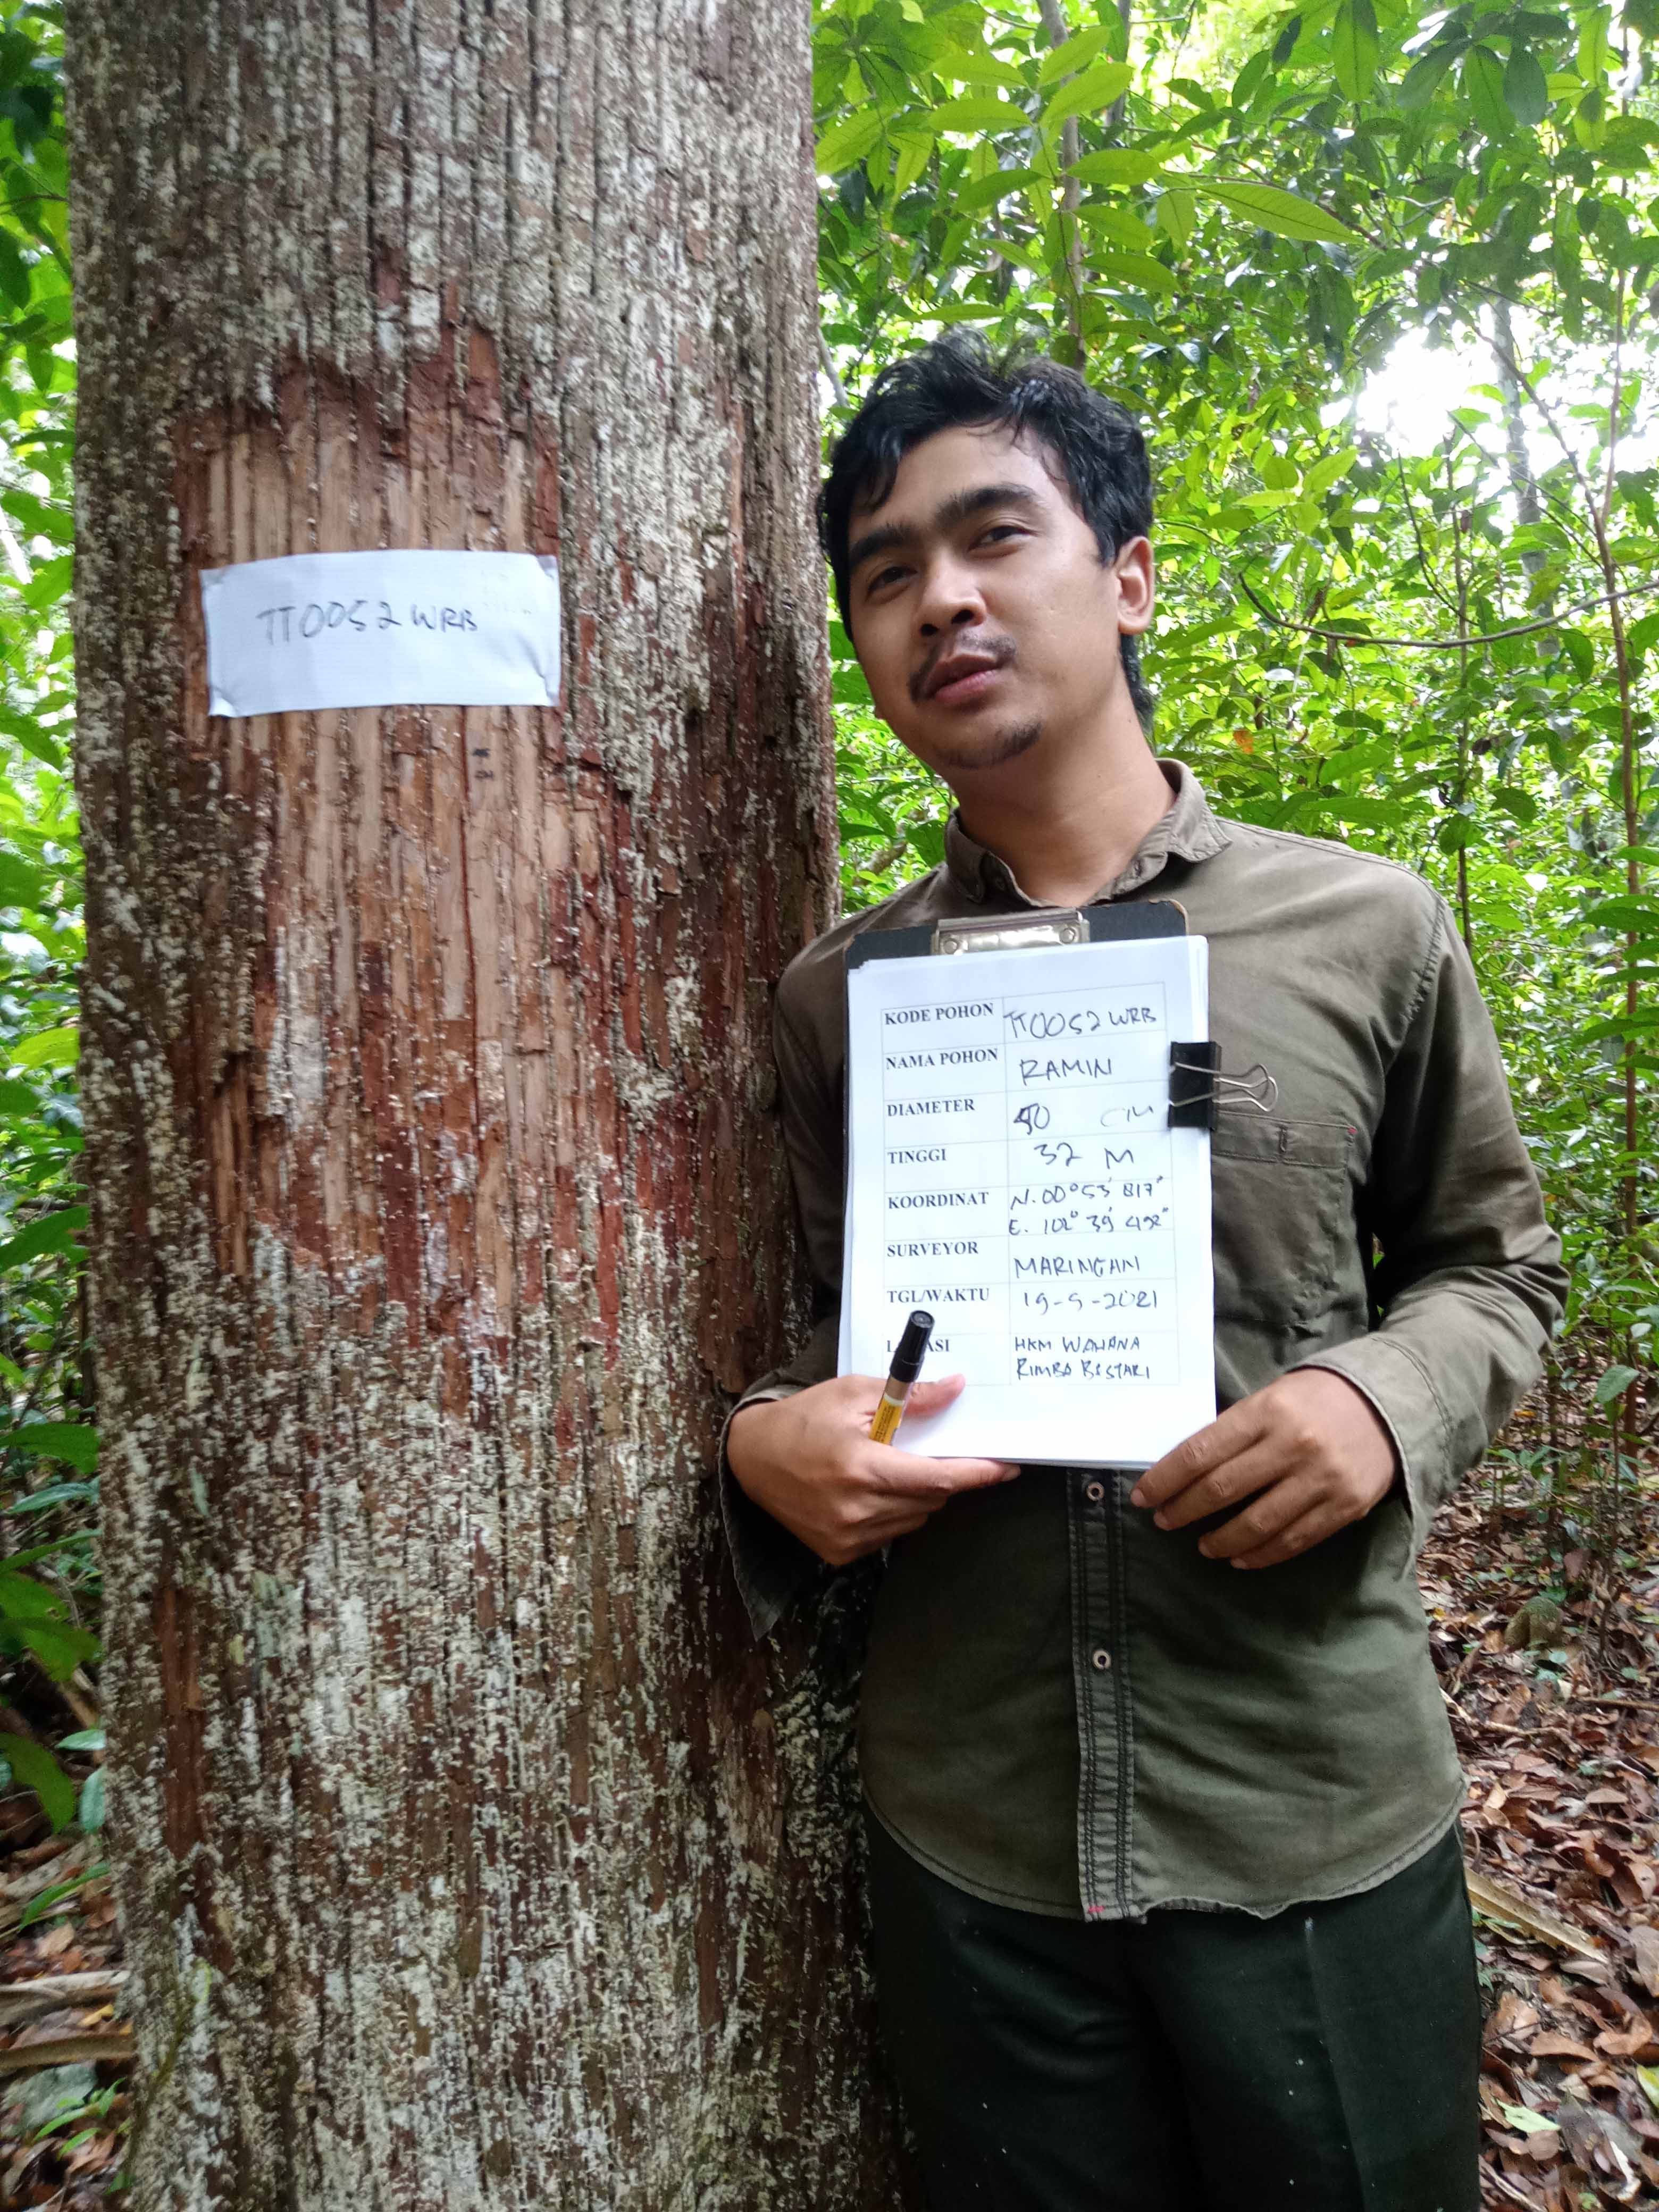 TT0052 WRB
KODE POHON TT0052 WRB
NAMA POHON RAMIN
DIAMETER 50 CM
TINGGI 32 M
KOORDINAT N. 00° 53' 817"
E. 102° 39' 492"
SURVEYOR MARINGAN
TGL/WAKTU 19-9-2021
HKM WAHANA
RIMBA BESTARI